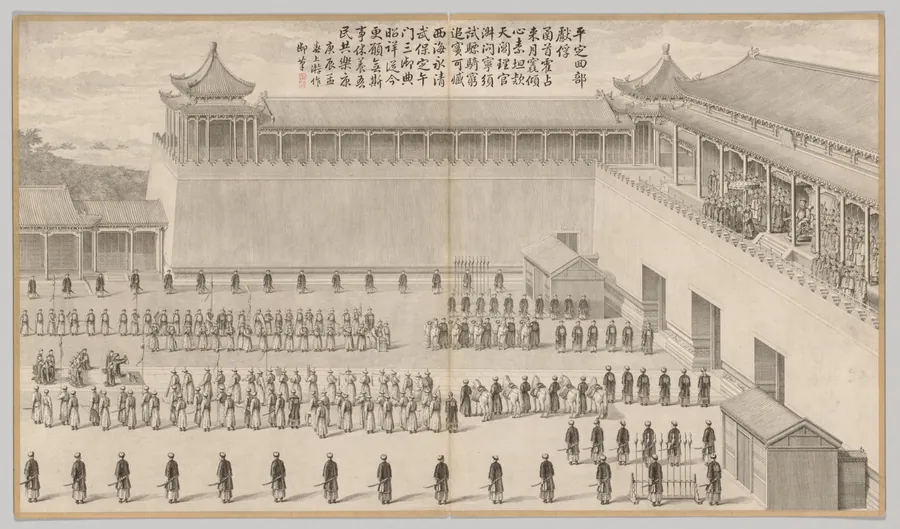 平定回部
獻俘
函首霍占
來月窟傾
心素坦款
天閶理官
淑問寧須
試驃騎窮
追實可臧
西海永清
武保定午
門三御典
昭祥從今
更願無斯
事休養吾
民共樂康
庚辰孟
春上澣作
御筆